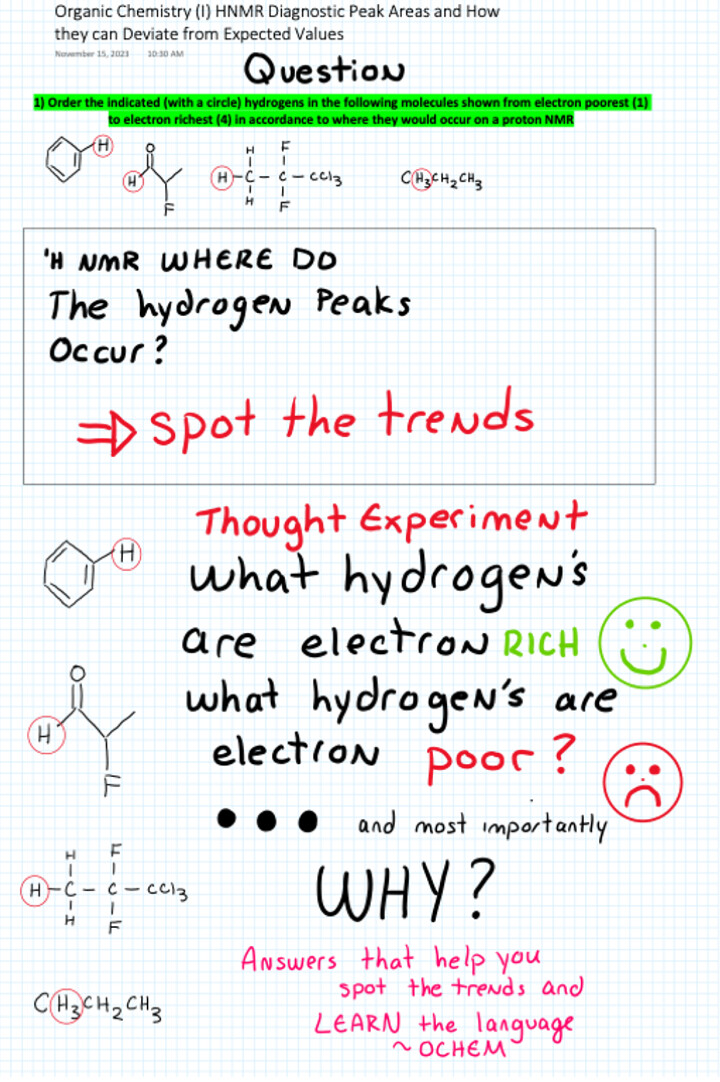 Organic Chemistry (I) HNMR Diagnostic Peak Areas and How
they can Deviate from Expected Values
November 15, 2023 10:30 AM
Question
1) Order the indicated (with a circle) hydrogens in the following molecules shown from electron poorest (1)
to electron richest (4) in accordance to where they would occur on a proton NMR
H
O
H
F
H F
H-C-C-CCl3
H F
CH3CH2CH3
'H NMR WHERE DO
The hydrogen Peaks
Occur?
⇒ spot the trends
Thought Experiment
H
what hydrogen's
are electron RICH
what hydrogen's are
electron poor?
O
H
F
• • • and most importantly
WHY?
H F
H-C-C-CCl3
H F
Answers that help you
spot the trends and
LEARN the language
~ OCHEM
CH3CH2CH3